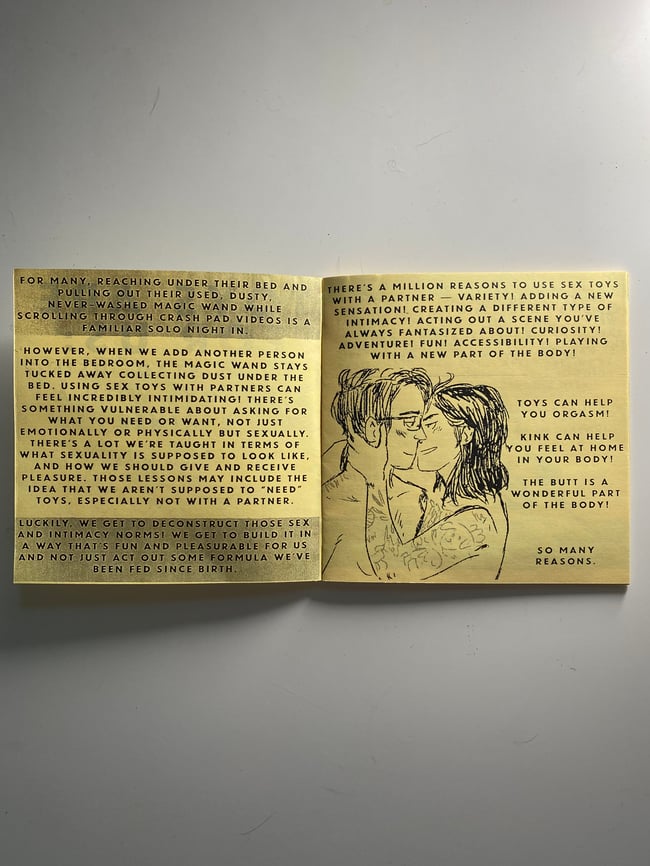 FOR MANY, REACHING UNDER THEIR BED AND
PULLING OUT THEIR USED, DUSTY,
NEVER-WASHED MAGIC WAND WHILE
SCROLLING THROUGH CRASH PAD VIDEOS IS A
FAMILIAR SOLO NIGHT IN.
HOWEVER, WHEN WE ADD ANOTHER PERSON
INTO THE BEDROOM, THE MAGIC WAND STAYS
TUCKED AWAY COLLECTING DUST UNDER THE
BED. USING SEX TOYS WITH PARTNERS CAN
FEEL INCREDIBLY INTIMIDATING! THERE'S
SOMETHING VULNERABLE ABOUT ASKING FOR
WHAT YOU NEED OR WANT, NOT JUST
EMOTIONALLY OR PHYSICALLY BUT SEXUALLY.
THERE'S A LOT WE'RE TAUGHT IN TERMS OF
WHAT SEXUALITY IS SUPPOSED TO LOOK LIKE,
AND HOW WE SHOULD GIVE AND RECEIVE
PLEASURE. THOSE LESSONS MAY INCLUDE THE
IDEA THAT WE AREN'T SUPPOSED TO "NEED"
TOYS, ESPECIALLY NOT WITH A PARTNER.
LUCKILY, WE GET TO DECONSTRUCT THOSE SEX
AND INTIMACY NORMS! WE GET TO BUILD IT IN
A WAY THAT'S FUN AND PLEASURABLE FOR US
AND NOT JUST ACT OUT SOME FORMULA WE'VE
BEEN FED SINCE BIRTH.
THERE'S A MILLION REASONS TO USE SEX TOYS
WITH A PARTNER — VARIETY! ADDING A NEW
SENSATION! CREATING A DIFFERENT TYPE OF
INTIMACY! ACTING OUT A SCENE YOU'VE
ALWAYS FANTASIZED ABOUT! CURIOSITY!
ADVENTURE! FUN! ACCESSIBILITY! PLAYING
WITH A NEW PART OF THE BODY!
TOYS CAN HELP
YOU ORGASM!
KINK CAN HELP
YOU FEEL AT HOME
IN YOUR BODY!
THE BUTT IS A
WONDERFUL PART
OF THE BODY!
SO MANY
REASONS.